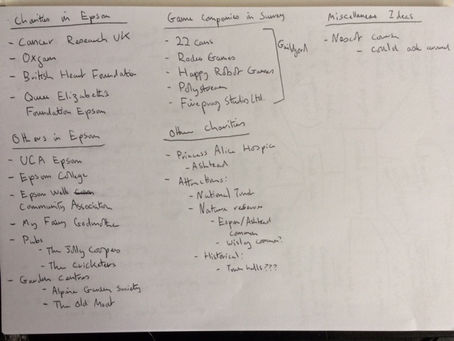 Charities in Epsom
- Cancer Research UK
- Oxfam
- British Heart Foundation
- Queen Elizabeths
Foundation Epsom
Others in Epsom
- UCA Epsom
- Epsom College
- Epsom Well
Community Association
- My Fairy Godmother
- Pubs
- The Jolly Coopers
- The Cricketers
- Garden Centres
- Alpine Garden Society
- The Old Moat
Game Companies in Surrey
- 22 cans
- Rodeo Games
- Happy Robot Games
- Polystream
- Fireproof Studios Ltd.
Guildford
Other charities
- Princess Alice Hospice
- Ashtead
- Attractions:
- National Trust
- Nature reserves
- Epsom/Ashtead
common
- Wisley common?
- Historical:
- Town halls???
Miscellaneous Ideas
- Nescot
- could ask around